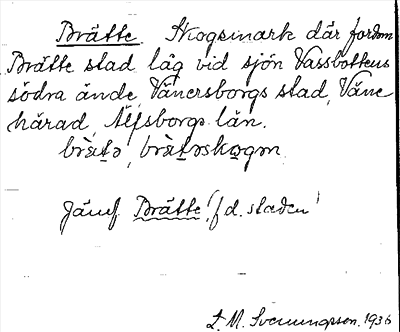 Brätte. Skogsmark där fordom
Brätte stad låg vid sjön Vassbottens
södra ände, Vänersborgs stad, Väne
härad, Älfsborgs län.
brɛ̀t̠ə, brɛ̀t̠əskωgən
Jämf Brätte (f d. staden)
L. M. Svenungsson. 1936